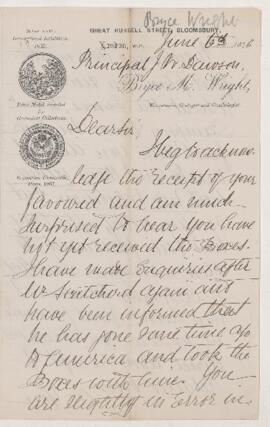 Bryce Wright
GREAT RUSSELL STREET, BLOOMSBURY,
LONDON, W.C. June 6th 1876
Principal J W Dawson,
Bryce M. Wright,
Mineralogist, Geologist and Conchologist.
Prize Medal awarded for
Geological Collections
Dear Sir,
I beg to acknow-
ledge the receipt of your
favoured and am much
surprised to hear you have
not yet received the Boxes.
I have made Enquiries after
Mr again and
have been informed that
he has gone some time ago
to America and took the
Boxes with him. You
are slightly in error in